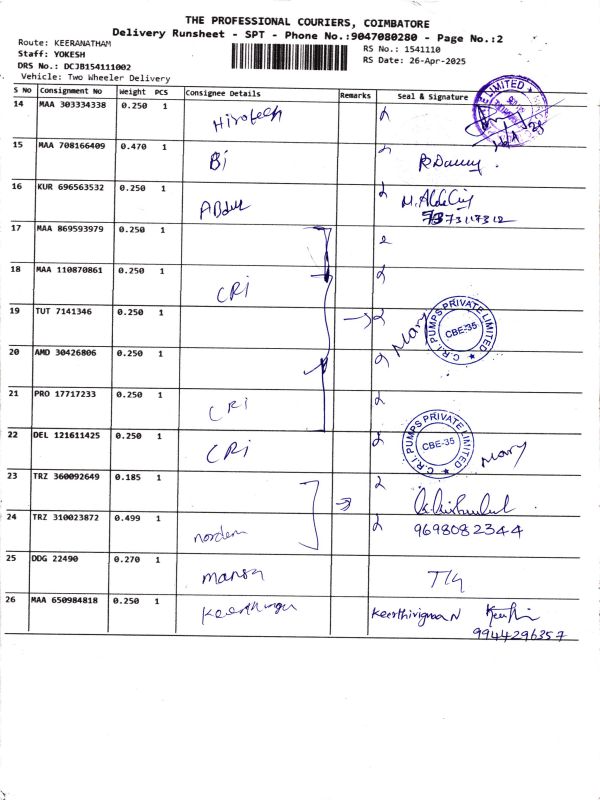 THE PROFESSIONAL COURIERS, COIMBATORE
Delivery Runsheet - SPT - Phone No.:9047080280 - Page No.:2
Route: KEERANATHAM
RS No.: 1541110
Staff: YOKESH
RS Date: 26-Apr-2025
DRS No.: DCJB154111002
Vehicle: Two Wheeler Delivery
S No Consignment No Weight PCS Consignee Details Remarks Seal & Signature
14 MAA 303334338 0.250 1 Hirotech
15 MAA 708166409 0.470 1 Bi
16 KUR 696563532 0.250 1 ABdul
7373117312
17 MAA 869593979 0.250 1
18 MAA 110870861 0.250 1 CRi
19 TUT 7141346 0.250 1 Mary
C.R.I. PUMPS PRIVATE LIMITED
CBE-35
20 AMD 30426806 0.250 1
21 PRO 17717233 0.250 1 CRi
22 DEL 121611425 0.250 1 CRi Mary
C.R.I. PUMPS PRIVATE LIMITED
CBE-35
23 TRZ 360092649 0.185 1
24 TRZ 310023872 0.499 1 9698082344
25 DDG 22490 0.270 1
26 MAA 650984818 0.250 1
9944296357